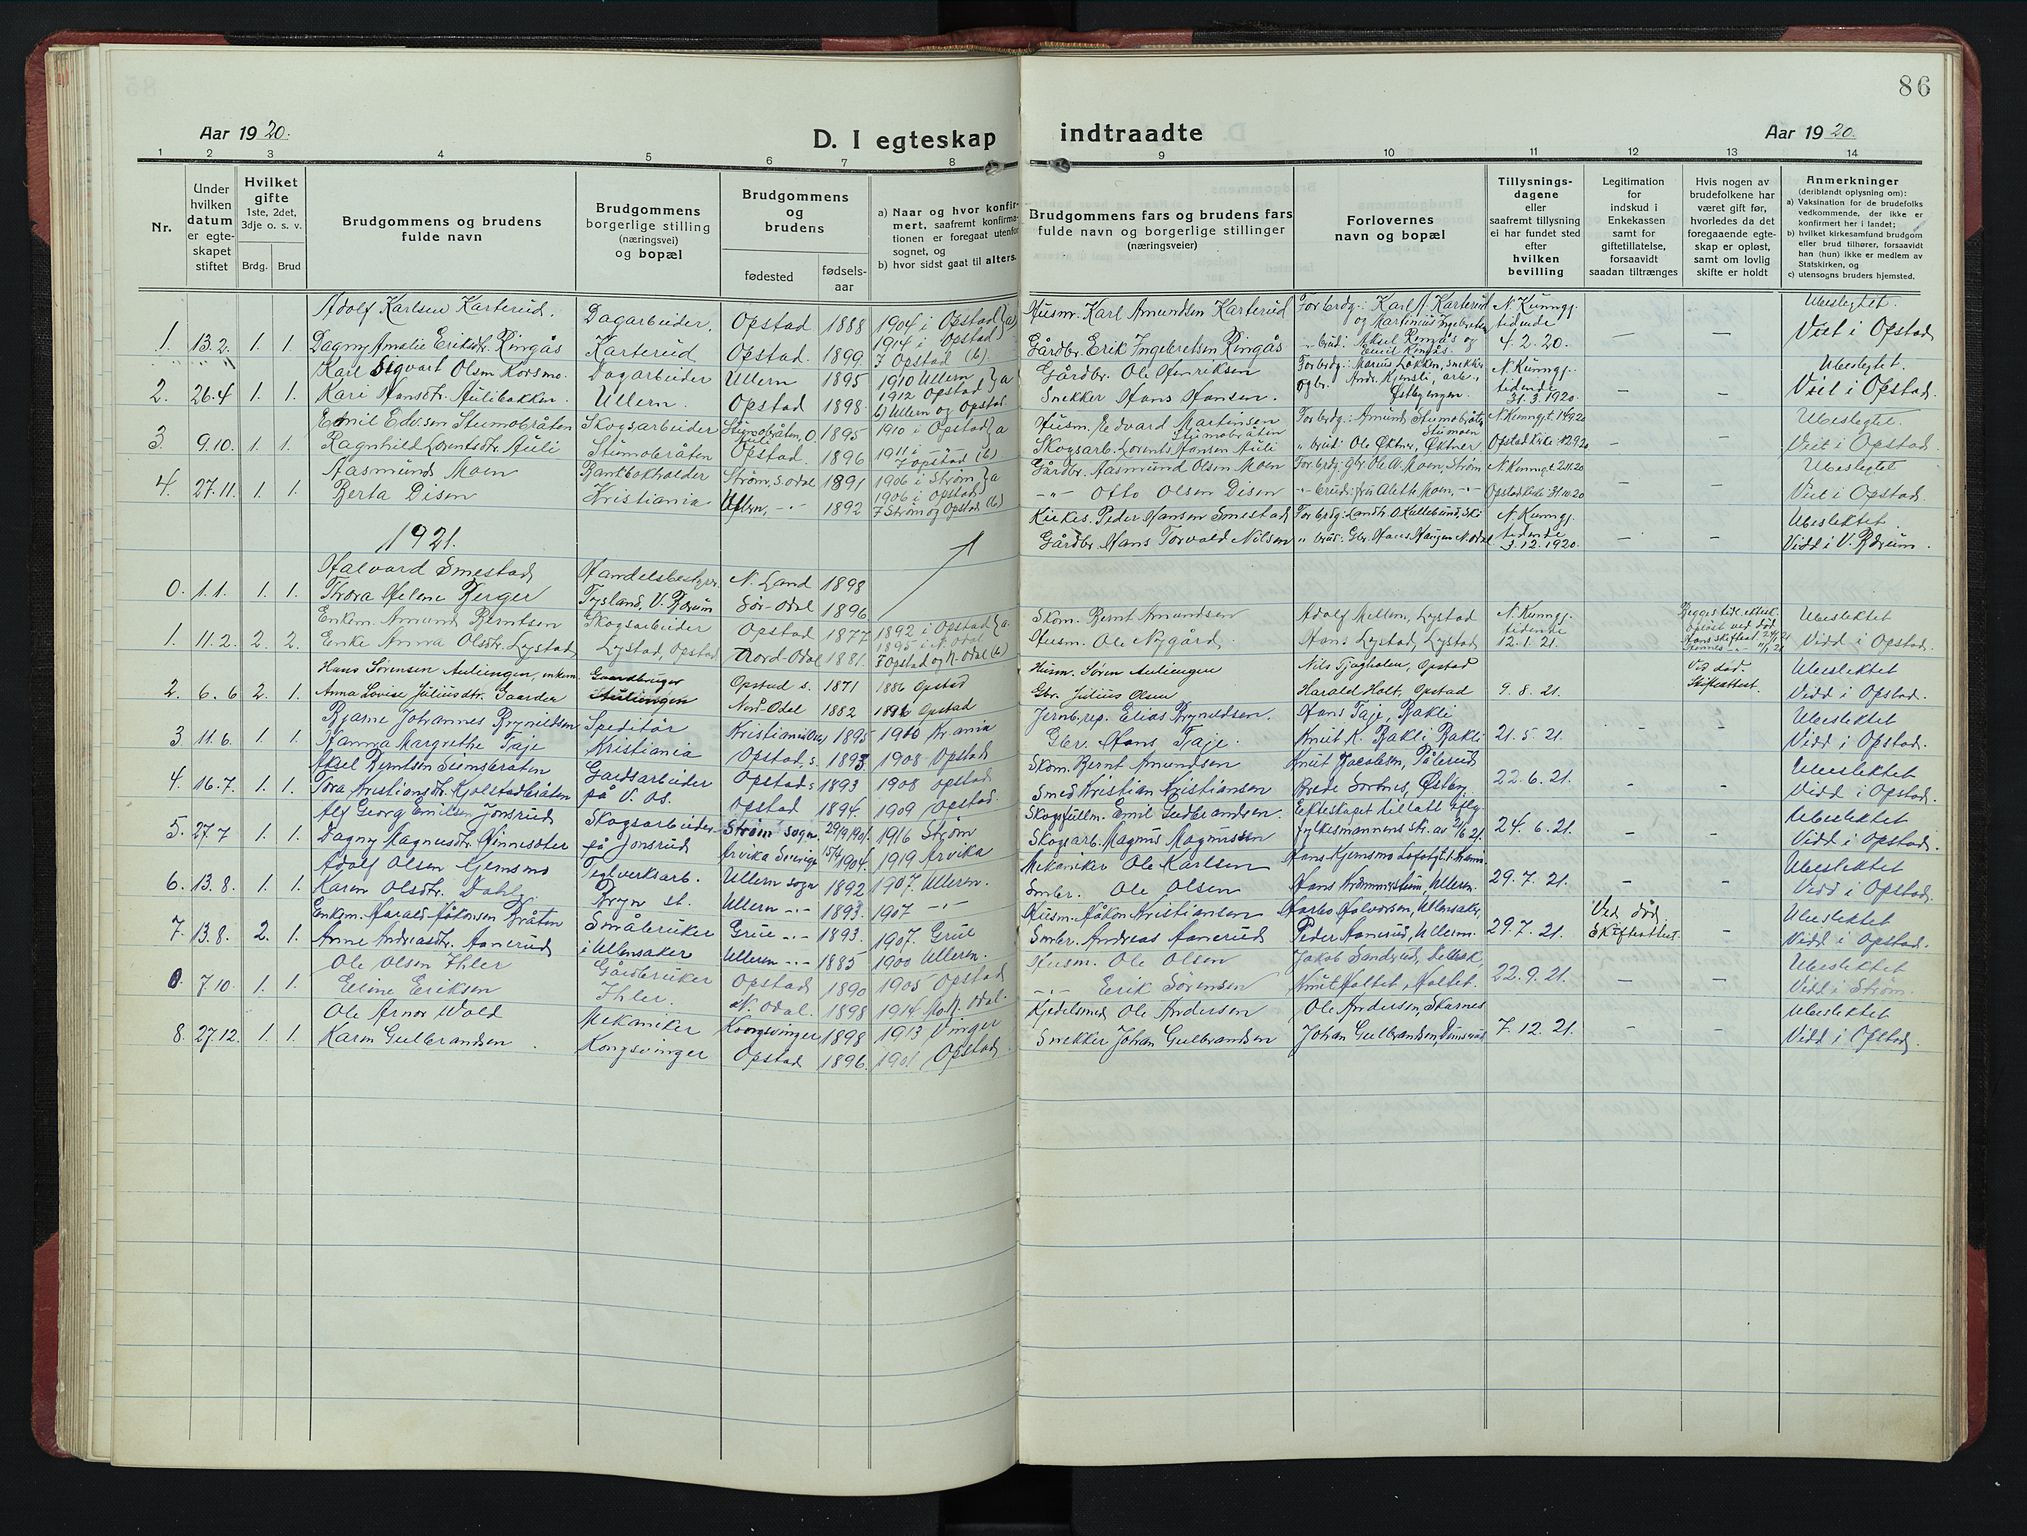 86
Aar 1920.
D. I egteskap
indtraadte
Aar 1920.
1 2 3 4 5 6 7 8 9 10 11 12 13 14
Nr.
Under hvilken datum er egteskapet stiftet
Hvilket gifte
1ste, 2det, 3dje o. s. v.
Brdg. Brud
Brudgommens og brudens fulde navn
Brudgommens borgerlige stilling (næringsvei) og bopæl
Brudgommens og brudens
fødested
fødselsaar
a) Naar og hvor konfirmert, saafremt konfirmationen er foregaat utenfor sognet, og
b) hvor sidst gaat til alters.
Brudgommens fars og brudens fars fulde navn og borgerlige stillinger (næringsveier)
Forlovernes navn og bopæl
Tillysningsdagene eller saafremt tillysning ei har fundet sted efter hvilken bevilling
Legitimation for indskud i Enkekassen samt for giftetillatelse, forsaavidt saadan tiltrænges
Hvis nogen av brudefolkene har været gift før, hvorledes da det foregaaende egteskap er opløst, samt om lovlig skifte er holdt
Anmerkninger
(deriblandt oplysning om):
a) Vaksination for de brudefolks vedkommende, der ikke er konfirmert her i landet;
b) hvilket kirkesamfund brudgom eller brud tilhører, forsaavidt han (hun) ikke er medlem av Statskirken, og
c) utensogns bruders hjemsted.
Adolf Karlsen Karterud. Dagarbeider, Opstad 1888 1904 i Opstad } a) Husm. Karl Amundsen Karterud For brdg.: Karl A. Karterud og Martinius Ingebretsen N. Kunngj. Ubeslegtet.
1. 13.2. 1. 1. Dagny Amalie Eriksdtr. Ringås Karterud Opstad. 1899. 1914 i Opstad 7 Opstad (b) Gårdbr. Erik Ingebretsen Ringås " brud: Aksel Ringås og Emil Ringås tidende 4.2.20. — — Viet i Opstad
Karl Sigvart Olsen Korsmo. Dagarbeider Ullern 1895 1910 Ullern } a Gårdbr. Ole Henriksen For brdg.: Marius Løkken, snekker N. Kunngj. Ubeslegtet
2. 26.4 1. 1. Kari Hansdtr. Aulibakken. Ullern. Opstad 1898. 1912 Opstad b) Ullern og Opstad Snekker Hans Hansen. tidende 31.3.1920. — Viet i Opstad
Emil Edvsen Stumobråten Skogsarbeider Stumobråten, O. 1895 1910 i Opstad } a Husm. Edvard Martinsen Stumobråten For brdg.: Amund Stumobråten, Stumoen Ubeslegtet
3. 9.10. 1. 1. Ragnhild Lorentsdtr. Auli Stumobråten Auli Opstad. 1896 1911 i 7 Opstad (b) Skogsarb. Lorents Hansen Auli " brud: Ole Øktner, Øktner — — Viet i Opstad
Aasmund Moen Bankbokholder Strøm, S. Odal 1891 1906 i Strøm } a Gårdbr. Aasmund Olsen Moen For brdg. gbr. Ole A. Moen, Strøm Ubeslegtet
4. 27.11. 1. 1. Berta Disen Kristiania Ullern, -"- 1892 1906 i Opstad 7 Strøm og Opstad (b) -"- Otto Olsen Disen " brud: frk Alette Moen, -"- — — Viet i Opstad
1921.
Kirkes. Peder Hansen Smestad For brdg: Landh. O. Kellebund, Ski N. Kunngj. Ubeslektet.
Gårdbr. Hans Torvald Nilsen " brud: Gbr. Hans Haugen N. Odal tidende 3.12.1920. — — Vidd i V. Bærum.
Halvard Smestad Handelsbestyrer N. Land 1898
0. 1.1. 1. 1. Thora Helene Berger Fysland, V. Bærum Sør-Odal 1896
Enkem. Amund Berntsen Skogsarbeider Opstad 1877 1892 i Opstad } a. Skom. Bernt Amundsen Adolf Mellem, Lystad N. Kunngj. Ubeslektet
1. 11.2. 2. 2. Enke Anna Olsdtr. Lystad Lystad, Opstad Nord Odal 1881. 1895 i N. Odal 7 Opstad og N. Odal (b) Husm. Ole Nygård. Hans Lystad, Lystad tidende 12.1.21. Vidd i Opstad.
Hans Sørensen Auliengen, enkem. Gaardbruger Opstad s. 1871 1886 Opstad Husm. Søren Auliengen Nils Tjaghalen, Opstad Ved død. Ubeslektet
2. 6.6 2. 1. Anna Lovise Juliusdtr. Gaarder Auliengen Nord Odal 1882 1896 Opstad Gbr. Julius Olsen Harald Holt, Opstad 9.8.21. Skifteattest. Vidd i Opstad.
Bjarne Johannes Brynildsen Speditør Kristiania 1895 1910 Krania Jernb. rep. Elias Brynildsen. Hans Taje, Bakli Ubeslektet
3. 11.6. 1. 1. Hanna Margrethe Taje Kristiania Opstad, s. 1893 1908 Opstad Gbr. Hans Taje. Knut K. Bakli, Bakli 21.5.21. — — Vidd i Opstad.
Aksel Berntsen Stumobråten Gårdsarbeider Opstad s 1893 1908 Opstad Skom. Bernt Amundsen Knut Jacobsen, Pålerud Ubeslektet
4. 16.7. 1. 1. Tora Kristiansdtr. Kjølstadbråten på V. Os. Opstad 1894. 1909 Opstad. Smed Kristian Kristiansen Brede Sætnes, Østby. 22.6.21. — — Vidd i Opstad.
Alf Georg Emilsen Jonsrud Skogsarbeider Strøm sogn 29/9 1901. 1916 Strøm Skogsfullm. Emil Gudbrandsen. Ekteskapet tillatt iflg. Ubeslektet
5. 27.7 1. 1. Dagny Magnusdtr. Finnesæter på Jonsrud Arvika Sverige 15/9 1904. 1919 Arvika Skogsarb. Magnus Magnussen fylkesmannens skr. av 21/6 21. 24.6.21. — — Vidd i Opstad.
Adolf Olsen Gjemsmo Teglverksarb. Ullern sogn 1892 1907. Ulleren. Mekaniker Ole Karlsen Ubeslektet
6. 13.8. 1. 1. Karen Olsdtr. Dahl Bryn st. Ullern -"- 1893. 1907 -"- Smbr. Ole Olsen Hans Krommestuen, Ulleren. 29.7.21. — — Vidd i Opstad.
Enkem. Harald Håkonsen Bråten Småbruker Grue -"- 1893. 1907. Grue Husm. Håkon Kristiansen Harbo Halvorsen, Ullensaker, Ved død. Ubeslektet
7. 13.8. 2. 1. Anne Andreasdtr. Aanerud i Ullensaker Ulleren -"- 1885 1900 Ulleren. Smbr. Andreas Aanerud Peder Aanerud, Ulleren 29.7.21. Skifteattest. — Vidd i Opstad.
Ole Olsen Ihler Gårdbruker Opstad 1890 1905 Opstad Husm. Ole Olsen Ubeslektet
0. 7.10. 1. 1. Eline Eriksen Ihler. N. Odal. 1898 1914 Mo N. Odal. -"- Erik Sørensen Knut Holtet, Holtet. 22.9.21. — — Vidd i Strøm.
Ole Arnor Wold Mekaniker Kongsvinger 1898 1913 Vinger Kjedelsmed Ole Andersen Ole Andersen, Skarnes Ubeslektet
8. 27.12. 1. 1. Karen Gulbrandsen Kongsvinger Opstad 1896. 1901 Opstad. Snekker Johan Gulbrandsen Johan Gulbrandsen, 7.12.21. — — Vidd i Opstad.